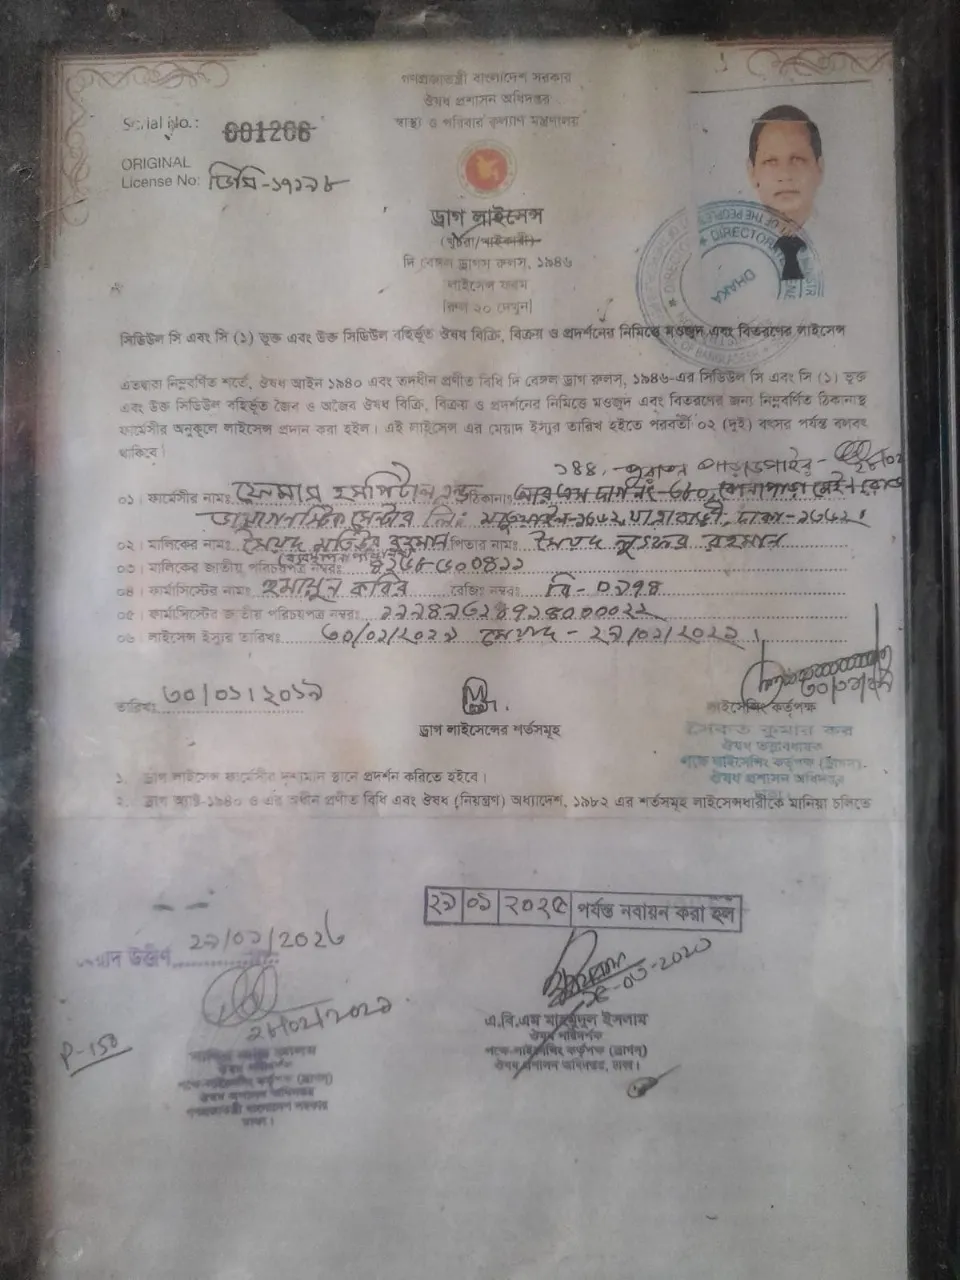 গণপ্রজাতন্ত্রী বাংলাদেশ সরকার
ঔষধ প্রশাসন অধিদপ্তর
স্বাস্থ্য ও পরিবার কল্যাণ মন্ত্রণালয়
Serial No.: 001206
ORIGINAL
License No: ডিসি-১৭১৯৮
ড্রাগ লাইসেন্স
(খুচরা/পাইকারী)
দি বেঙ্গল ড্রাগস রুলস, ১৯৪৬
লাইসেন্স ফরম
[রুল ২০ দেখুন]
সিডিউল সি এবং সি (১) ভুক্ত এবং উক্ত সিডিউল বহির্ভূত ঔষধ বিক্রি, বিক্রয় ও প্রদর্শনের নিমিত্তে মওজুদ এবং বিতরণের লাইসেন্স
এতদ্বারা নিম্নবর্ণিত শর্তে, ঔষধ আইন ১৯৪০ এবং তদধীন প্রণীত বিধি দি বেঙ্গল ড্রাগ রুলস, ১৯৪৬-এর সিডিউল সি এবং সি (১) ভুক্ত
এবং উক্ত সিডিউল বহির্ভূত জৈব ও অজৈব ঔষধ বিক্রি, বিক্রয় ও প্রদর্শনের নিমিত্তে মওজুদ এবং বিতরণের জন্য নিম্নবর্ণিত ঠিকানায়
ফার্মেসীর অনুকূলে লাইসেন্স প্রদান করা হইল। এই লাইসেন্স এর মেয়াদ ইস্যুর তারিখ হইতে পরবর্তী ০২ (দুই) বৎসর পর্যন্ত বলবৎ
থাকিবে।
০১। ফার্মেসীর নাম: ফেমাস হসপিটাল এন্ড ঠিকানা:
ডায়াগনস্টিক সেন্টার লি: মাতুয়াইল-১৩৬২, যাত্রাবাড়ী, ঢাকা-১৩৬২।
০২। মালিকের নাম: সৈয়দ মজিবুর রহমান পিতার নাম: সৈয়দ লুৎফর রহমান
০৩। মালিকের জাতীয় পরিচয়পত্র নম্বর:
০৪। ফার্মাসিস্টের নাম: হুমায়ূন কবির রেজিঃ নম্বর: বি-
০৫। ফার্মাসিস্টের জাতীয় পরিচয়পত্র নম্বর:
০৬। লাইসেন্স ইস্যুর তারিখ: মেয়াদ - ২৯/০১/২০২১।
তারিখ: ৩০/০১/২০১৯
লাইসেন্সিং কর্তৃপক্ষ
সৈকত কুমার কর
ঔষধ তত্ত্বাবধায়ক
পক্ষে লাইসেন্সিং কর্তৃপক্ষ (ড্রাগস)
ঔষধ প্রশাসন অধিদপ্তর
ড্রাগ লাইসেন্সের শর্তসমূহ
১. ড্রাগ লাইসেন্স ফার্মেসীর দৃশ্যমান স্থানে প্রদর্শন করিতে হইবে।
২. ড্রাগ অ্যাক্ট-১৯৪০ ও এর অধীন প্রণীত বিধি এবং ঔষধ (নিয়ন্ত্রণ) অধ্যাদেশ, ১৯৮২ এর শর্তসমূহ লাইসেন্সধারীকে মানিয়া চলিতে
২৯|০১|২০২৫ পর্যন্ত নবায়ন করা হল
মেয়াদ উত্তীর্ণ ২৯/০১/২০২৩
P-150
এ.বি.এম মাহমুদুল ইসলাম
ঔষধ পরিদর্শক
পক্ষে-লাইসেন্সিং কর্তৃপক্ষ (ড্রাগস)
ঔষধ প্রশাসন অধিদপ্তর, ঢাকা।
ঔষধ পরিদর্শক
পক্ষে-লাইসেন্সিং কর্তৃপক্ষ (ড্রাগস)
ঔষধ প্রশাসন অধিদপ্তর
গণপ্রজাতন্ত্রী বাংলাদেশ সরকার
ঢাকা।